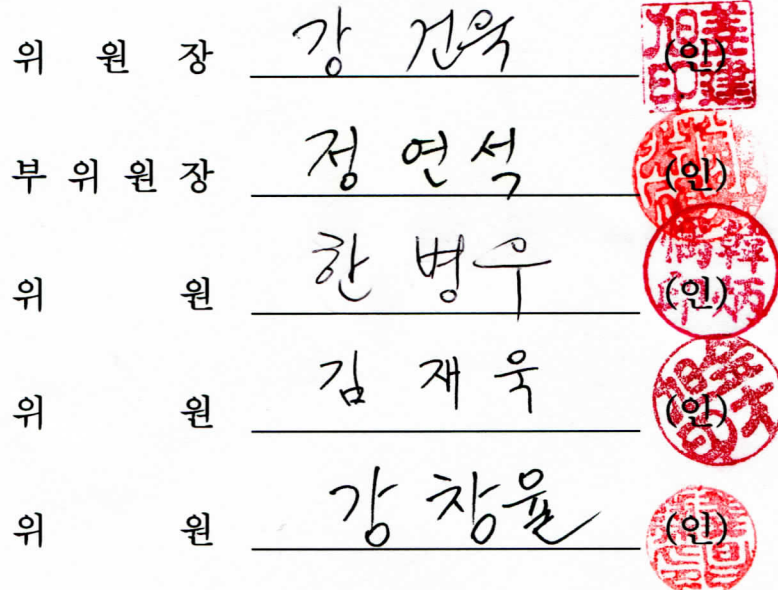 위 원 장 강 건욱 (인)
부 위 원 장 정 연 석 (인)
위 원 한 병 우 (인)
위 원 김 재 욱 (인)
위 원 강 창율 (인)